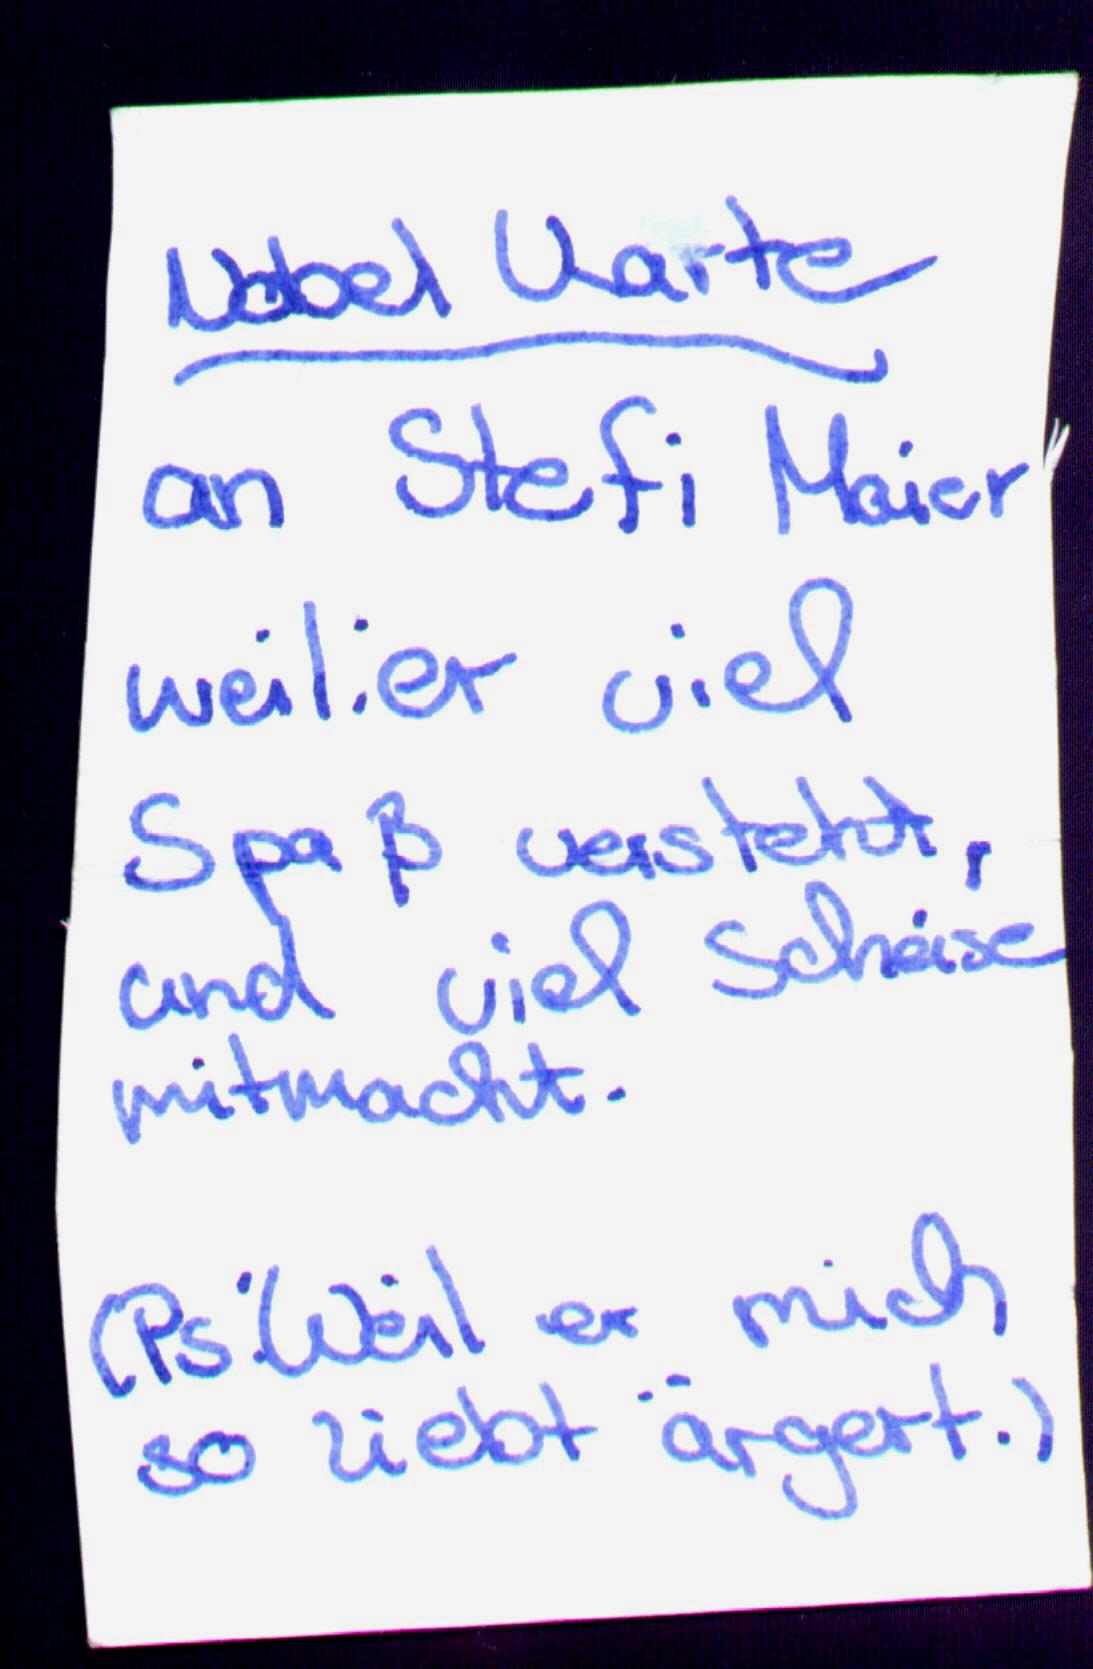 Nobel Karte
an Stefi Maier
weil er viel
Spaß versteht,
und viel Scheise
mitmacht.
(Ps: Weil er mich
so liebt ärgert.)